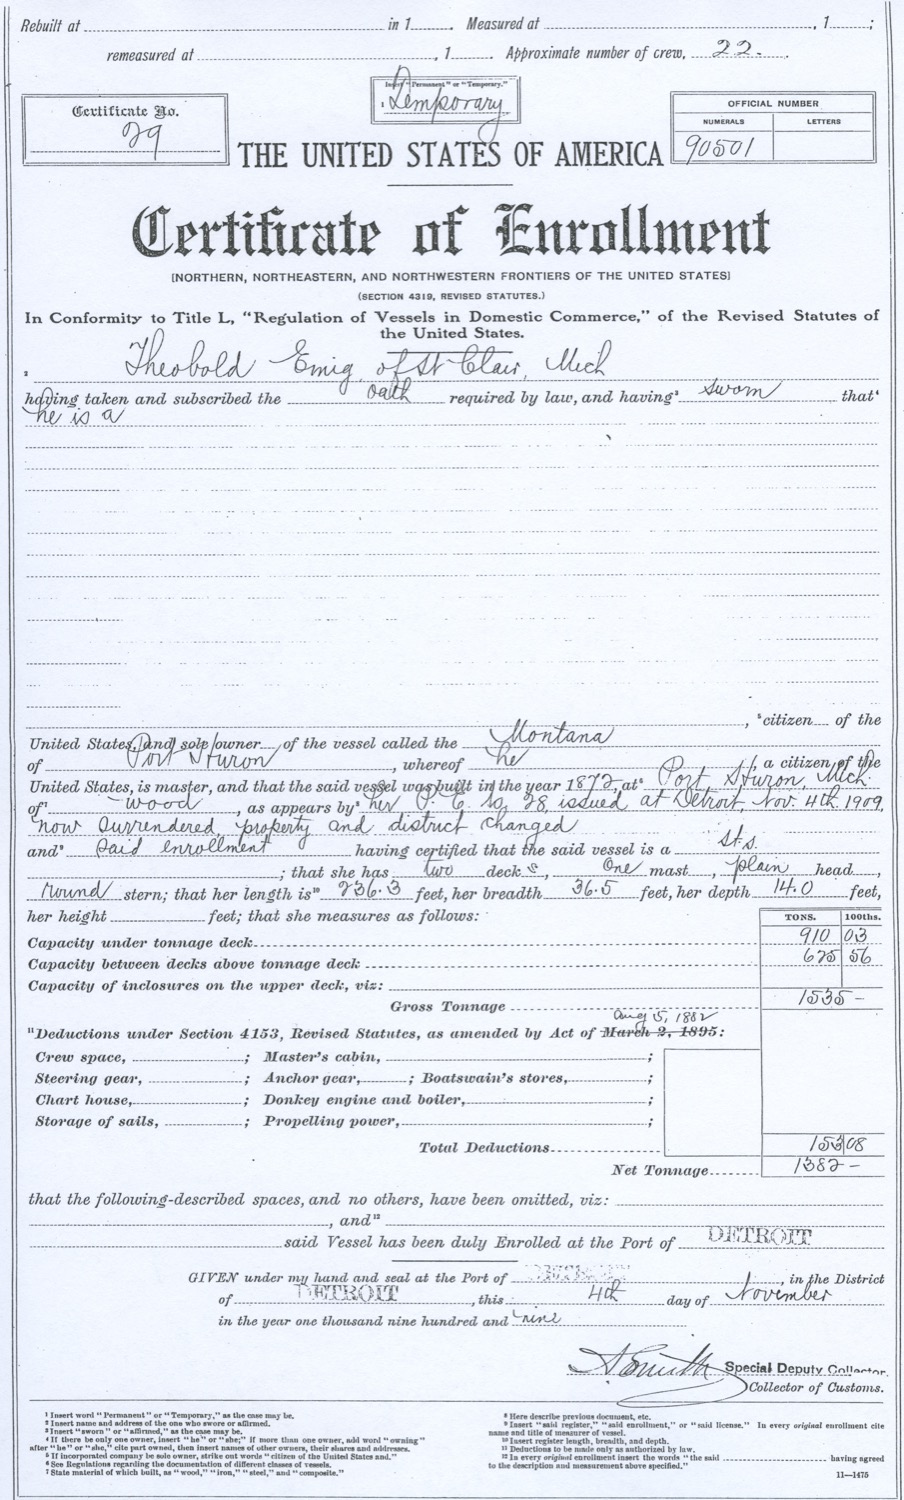 Rebuilt at in 1 . Measured at , 1 ;
remeasured at , 1 . Approximate number of crew, 22.
Insert "Permanent" or "Temporary."
1 Temporary
Certificate No.
29
OFFICIAL NUMBER
NUMERALS LETTERS
90501
THE UNITED STATES OF AMERICA
Certificate of Enrollment
[NORTHERN, NORTHEASTERN, AND NORTHWESTERN FRONTIERS OF THE UNITED STATES]
(SECTION 4319, REVISED STATUTES.)
In Conformity to Title L, "Regulation of Vessels in Domestic Commerce," of the Revised Statutes of
the United States.
2 Theobold Emig, of St Clair, Mich
having taken and subscribed the oath required by law, and having3 sworn that4
he is a
, 5citizen of the
United States, and sole owner of the vessel called the Montana
of Port Huron , whereof he , a citizen of the
United States, is master, and that the said vessel was built in the year 1872, at6 Port Huron, Mich.
of7 wood , as appears by8 her P. E. No 28 issued at Detroit, Nov. 4th. 1909,
now surrendered, property and district changed
and9 said enrollment having certified that the said vessel is a St. s.
; that she has two deck s, One mast , plain head ,
round stern; that her length is10 236.3 feet, her breadth 36.5 feet, her depth 14.0 feet,
her height feet; that she measures as follows:
TONS. 100ths.
Capacity under tonnage deck 910 03
Capacity between decks above tonnage deck 625 56
Capacity of inclosures on the upper deck, viz:
Gross Tonnage 1535 –
Aug 5, 1882
11Deductions under Section 4153, Revised Statutes, as amended by Act of March 2, 1895:
Crew space, ; Master's cabin, ;
Steering gear, ; Anchor gear, ; Boatswain's stores, ;
Chart house, ; Donkey engine and boiler, ;
Storage of sails, ; Propelling power, ;
Total Deductions 153 08
Net Tonnage 1382 –
that the following-described spaces, and no others, have been omitted, viz:
, and12
said Vessel has been duly Enrolled at the Port of DETROIT
GIVEN under my hand and seal at the Port of DETROIT , in the District
of DETROIT , this 4th day of November
in the year one thousand nine hundred and nine
Smith Special Deputy Collector
Collector of Customs.
1 Insert word "Permanent" or "Temporary," as the case may be.
2 Insert name and address of the one who swore or affirmed.
3 Insert "sworn" or "affirmed," as the case may be.
4 If there be only one owner, insert "he" or "she;" if more than one owner, add word "owning"
after "he" or "she," cite part owned, then insert names of other owners, their shares and addresses.
5 If incorporated company be sole owner, strike out words "citizen of the United States and."
6 See Regulations regarding the documentation of different classes of vessels.
7 State material of which built, as "wood," "iron," "steel," and "composite."
8 Here describe previous document, etc.
9 Insert "said register," "said enrollment," or "said license." In every original enrollment cite
name and title of measurer of vessel.
10 Insert register length, breadth, and depth.
11 Deductions to be made only as authorized by law.
12 In every original enrollment insert the words "the said having agreed
to the description and measurement above specified."
11—1475